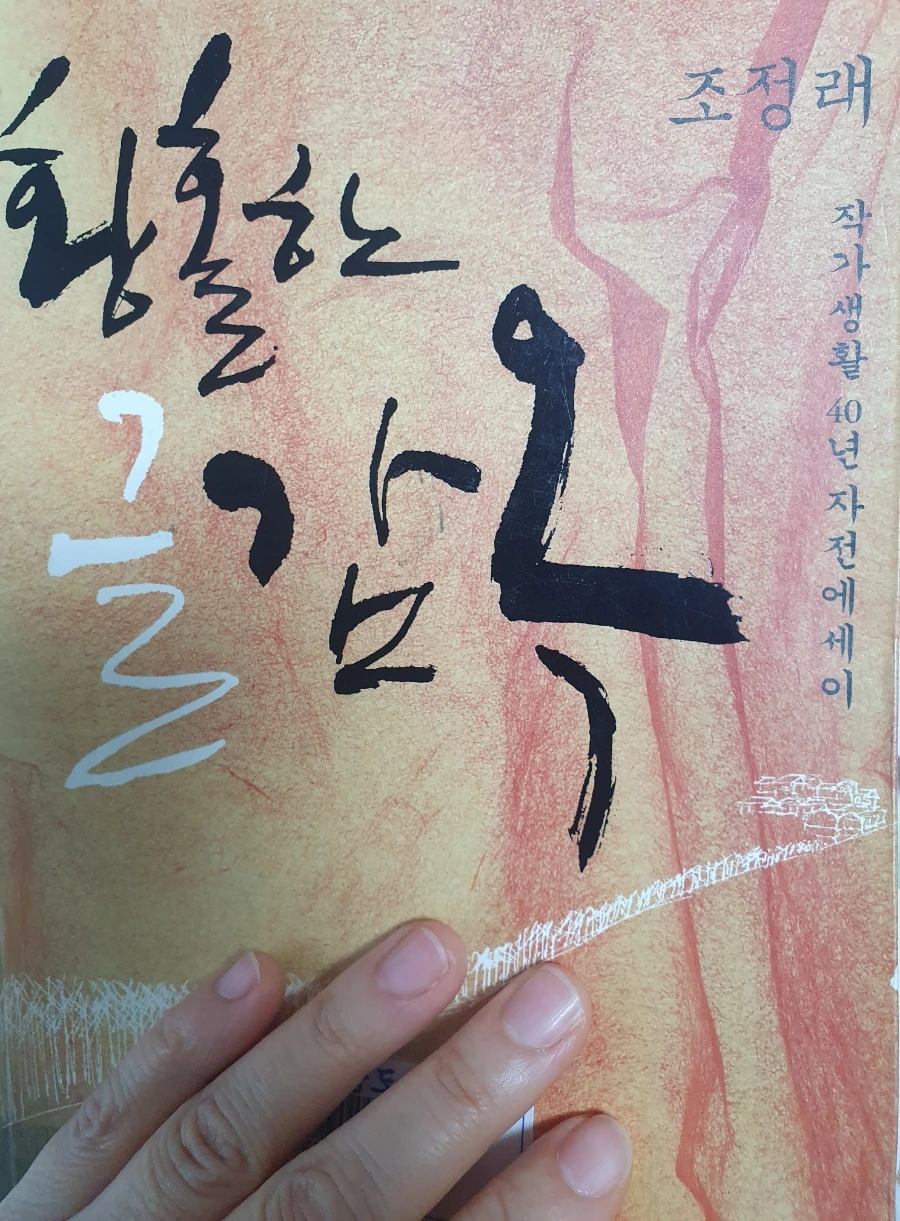 조정래
작가생활 40년 자전에세이
황홀한
글감옥